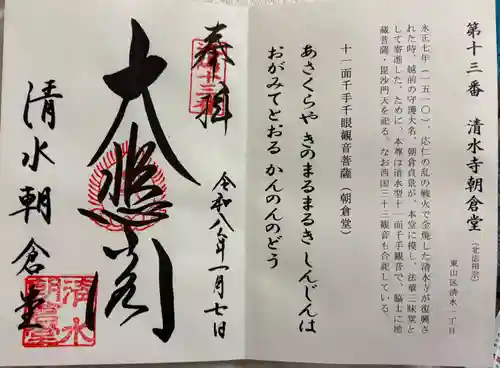 第十三番 清水寺朝倉堂
(北法相宗)
東山区清水一丁目
永正七年(一五一〇)、応仁の乱の戦火で全焼した清水寺が復興さ
れた時、越前の守護大名、朝倉貞景が、本堂に模し、法華三昧堂と
して寄進した。ために、本尊は清水型十一面千手観音で、脇士に地
蔵菩薩・毘沙門天を祀る。なお西国三十三観音も合祀している。
十一面千手千眼観音菩薩(朝倉堂)
あさくらや きのまるまるき しんじんは
おがみてとおる かんのんのどう
奉拝
令和八年一月七日
大悲閣
清水朝倉堂
清水
朝倉堂